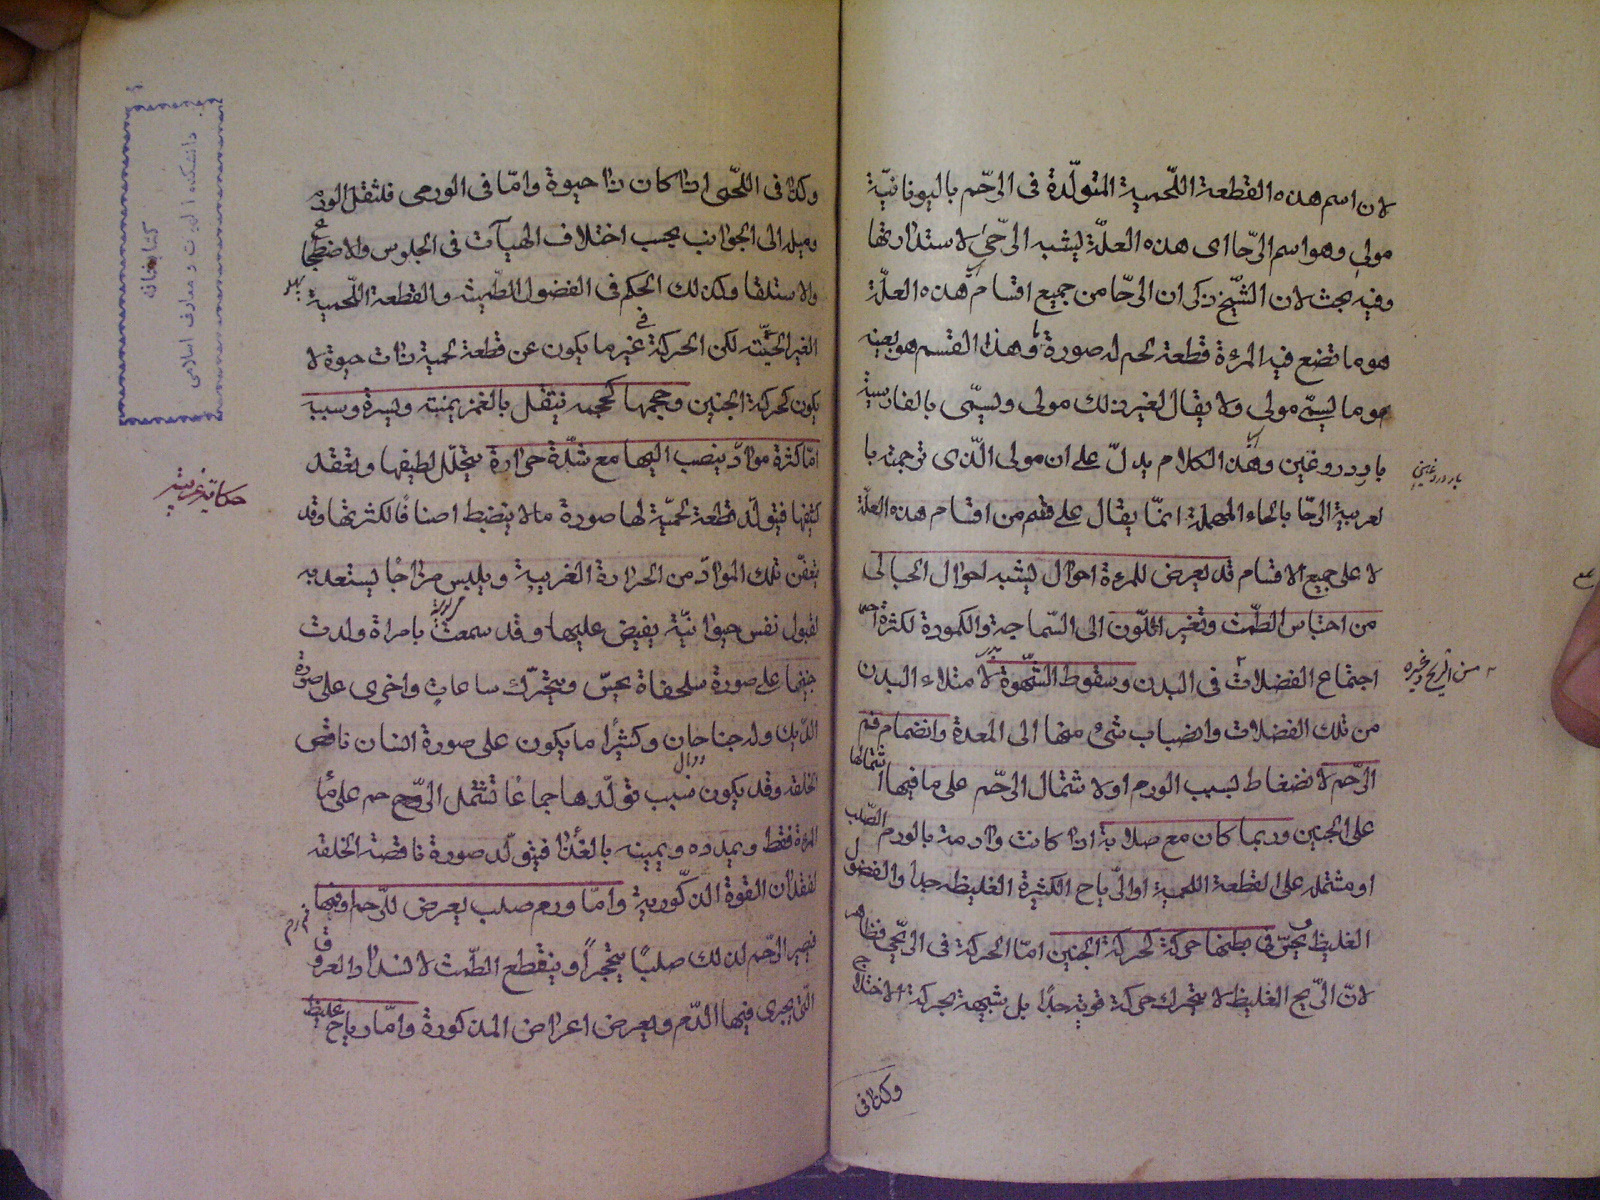 لان اسم هذه القطعة اللّحمية المتولّدة فى الرّحم باليونانيّة
مولى وهو اسم الرّحا اى هذه العلّة ليشبه الرّحى لاستدارتها
وفيه بحث لان الشّيخ ذكر ان الرّحا من جميع اقسام هذه العلّة
هو ما تضع فيه المرءة قطعة لحم له صورة وهذا القسم هو بعينه
هو ما يسمّى مولى ولا يقال لغير ذلك مولى ويسمّى بالفارسية
باد دروغين وهذا الكلام يدلّ على ان مولى الّذى ترجمته با
لعربية الرّحا بالحاء المهملة انمّا يقال على قسم من اقسام هذه العلّة
لا على جميع الاقسام قد يعرض للمرءة احوال ليشبه احوال الحبالى
من احتباس الطّمث وتغير اللّون الى السّماجة والكمودة لكثرة
اجتماع الفضلات فى البدن وسقوط الشّهوة لامتلاء البدن
من تلك الفضلات وانصباب شىء منها الى المعدة وانضمام فم
الرّحم لانضغاط بسبب الورم او لاشتمال الرّحم على ما فيها اشتمالها
على الجنين وربما كان مع صلابة اذا كانت وارمة بالورم الصّلب
او مشتملة على القطعة اللحمية او الرّياح الكثيرة الغليظة جدا والفضول
الغليظ ويحسّ فى بطنها حركة كحركة الجنين امّا الحركة فى الريّحى فظاهر
لانّ الرّيح الغليظ لا يتحرك حركة قوية جدّا بل شبيهة بحركة الاختلاج
وكذا فى
باد دروغين
وكذا فى اللّحمى اذا كان ذا حيوة وامّا فى الورمى فلثقل الورم
وميله الى الجوانب بحسب اختلاف الهيآت فى الجلوس والاضطجاع
والاستلقا وكذلك الحكم فى الفضول الطّمثية والقطعة اللّحمية
الغير الحيّة لكن الحركة فى غير ما يكون عن قطعة لحمية ذات حيوة لا
يكون كحركة الجنين وحجمها كحجمه ينتقل بالغمز يمنة ويسرة وسببه
امّا كثرة موادّ ينصب اليها مع شدّة حرارة يتحلّل لطيفها وينعقد
كثيفها فيتولّد قطعة لحميّة لها صورة ما لا ينضبط اصنافا لكثرتها وقد
يتعفّن تلك الموادّ من الحرارة الغريبة ويلبس مزاجًا يستعد به
لقبول نفس حيوانيّة يفيض عليها وقد سمعت بامراة ولدت
جنينها على صورة سلحفاة يحسّ ويتحرّك ساعات واخرى على صورة
الدّيك وله جناحان وكثيرًا ما يكون على صورة انسان ناقص
الخلقة وقد يكون سبب تولّدها جماعًا تشتمل الرّحم على ماء
المرءة فقط ويمدده وينميه بالغذا فيتولّد صورة ناقصة الخلقة
لفقدان القوة الذّكورية وامّا ورم صلب يعرض للرّحم او فمها
فيصير الرّحم لذلك صلبًا متحجرًا وينقطع الطّمث لانسداد العروق
الّتى يجرى فيها الدّم ويعرض اعراض المذكورة وامّا رياح غليظة
حكاية غريبة
كتابخانه
دانشكده الهيات و معارف اسلامى